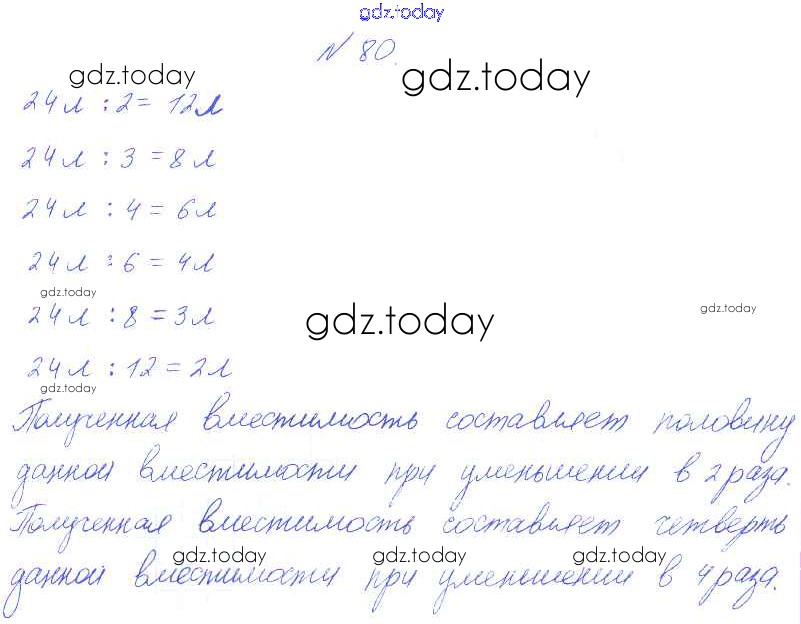 gdz.today
№ 80.
gdz.today
gdz.today
24 л : 2 = 12 л
24 л : 3 = 8 л
24 л : 4 = 6 л
24 л : 6 = 4 л
gdz.today
gdz.today
gdz.today
24 л : 8 = 3 л
24 л : 12 = 2 л
gdz.today
Полученная вместимость составляет половину
данной вместимости при уменьшении в 2 раза.
Полученная вместимость составляет четверть
gdz.today
gdz.today
gdz.today
данной вместимости при уменьшении в 4 раза.